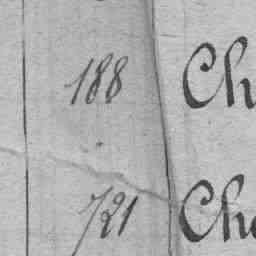 188 Ch
721 Che